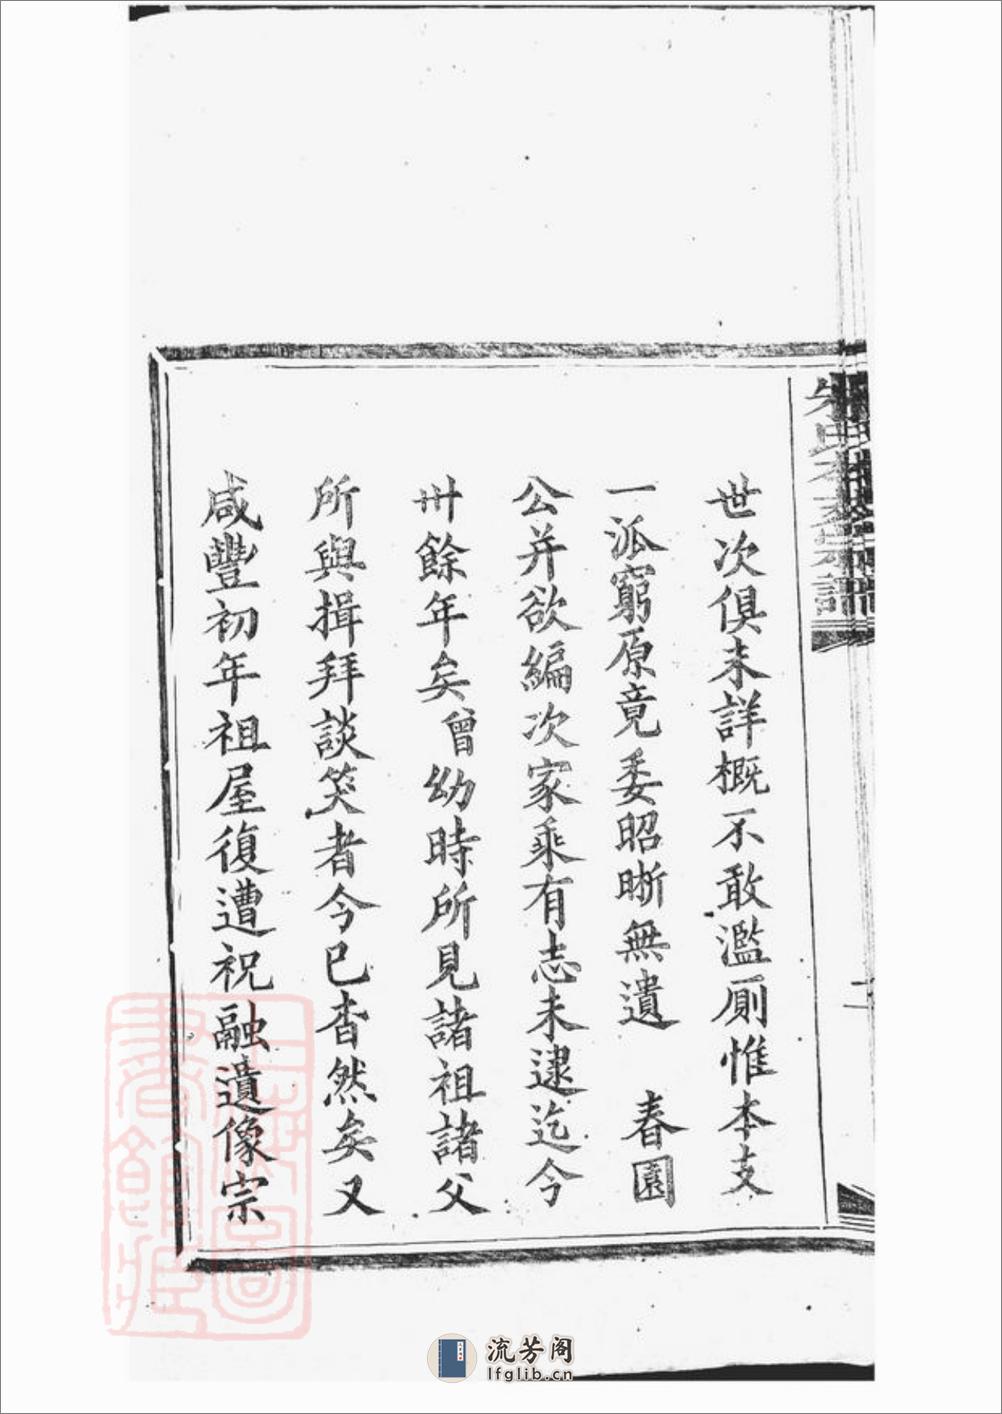 朱氏本支宗譜
世次俱未詳概不敢濫厠惟本支
一派窮原竟委昭晰無遺 春園
公并欲編次家乘有志未逮迄今
卅餘年矣曾幼時所見諸祖諸父
所與揖拜談笑者今已杳然矣又
咸豐初年祖屋復遭祝融遺像宗
上海圖書館藏
流芳阁
lfglib.cn